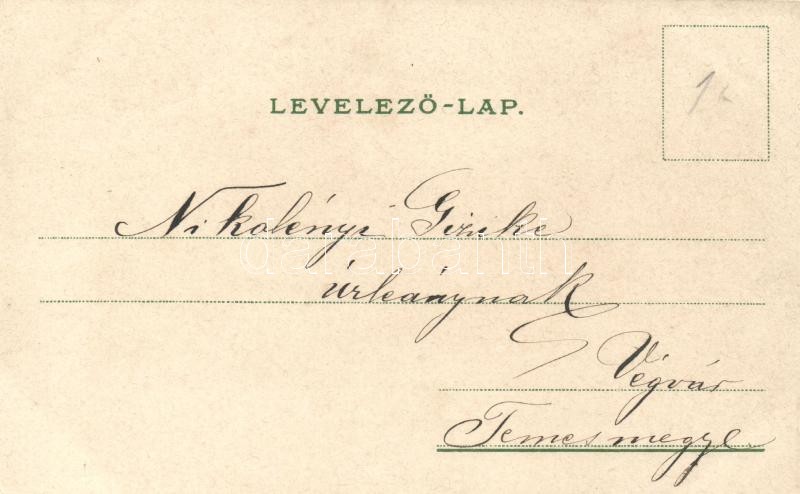 LEVELEZŐ-LAP.
1
Nikolényi Gizike
darabanth
úrleánynak
Végvár
Temesmegye